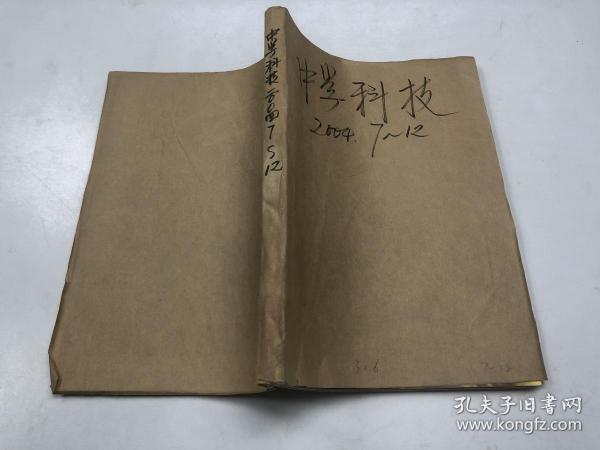 中学科技
2004. 7~12
中学科技
7
12
7-12
孔夫子旧书网
www.kongfz.com